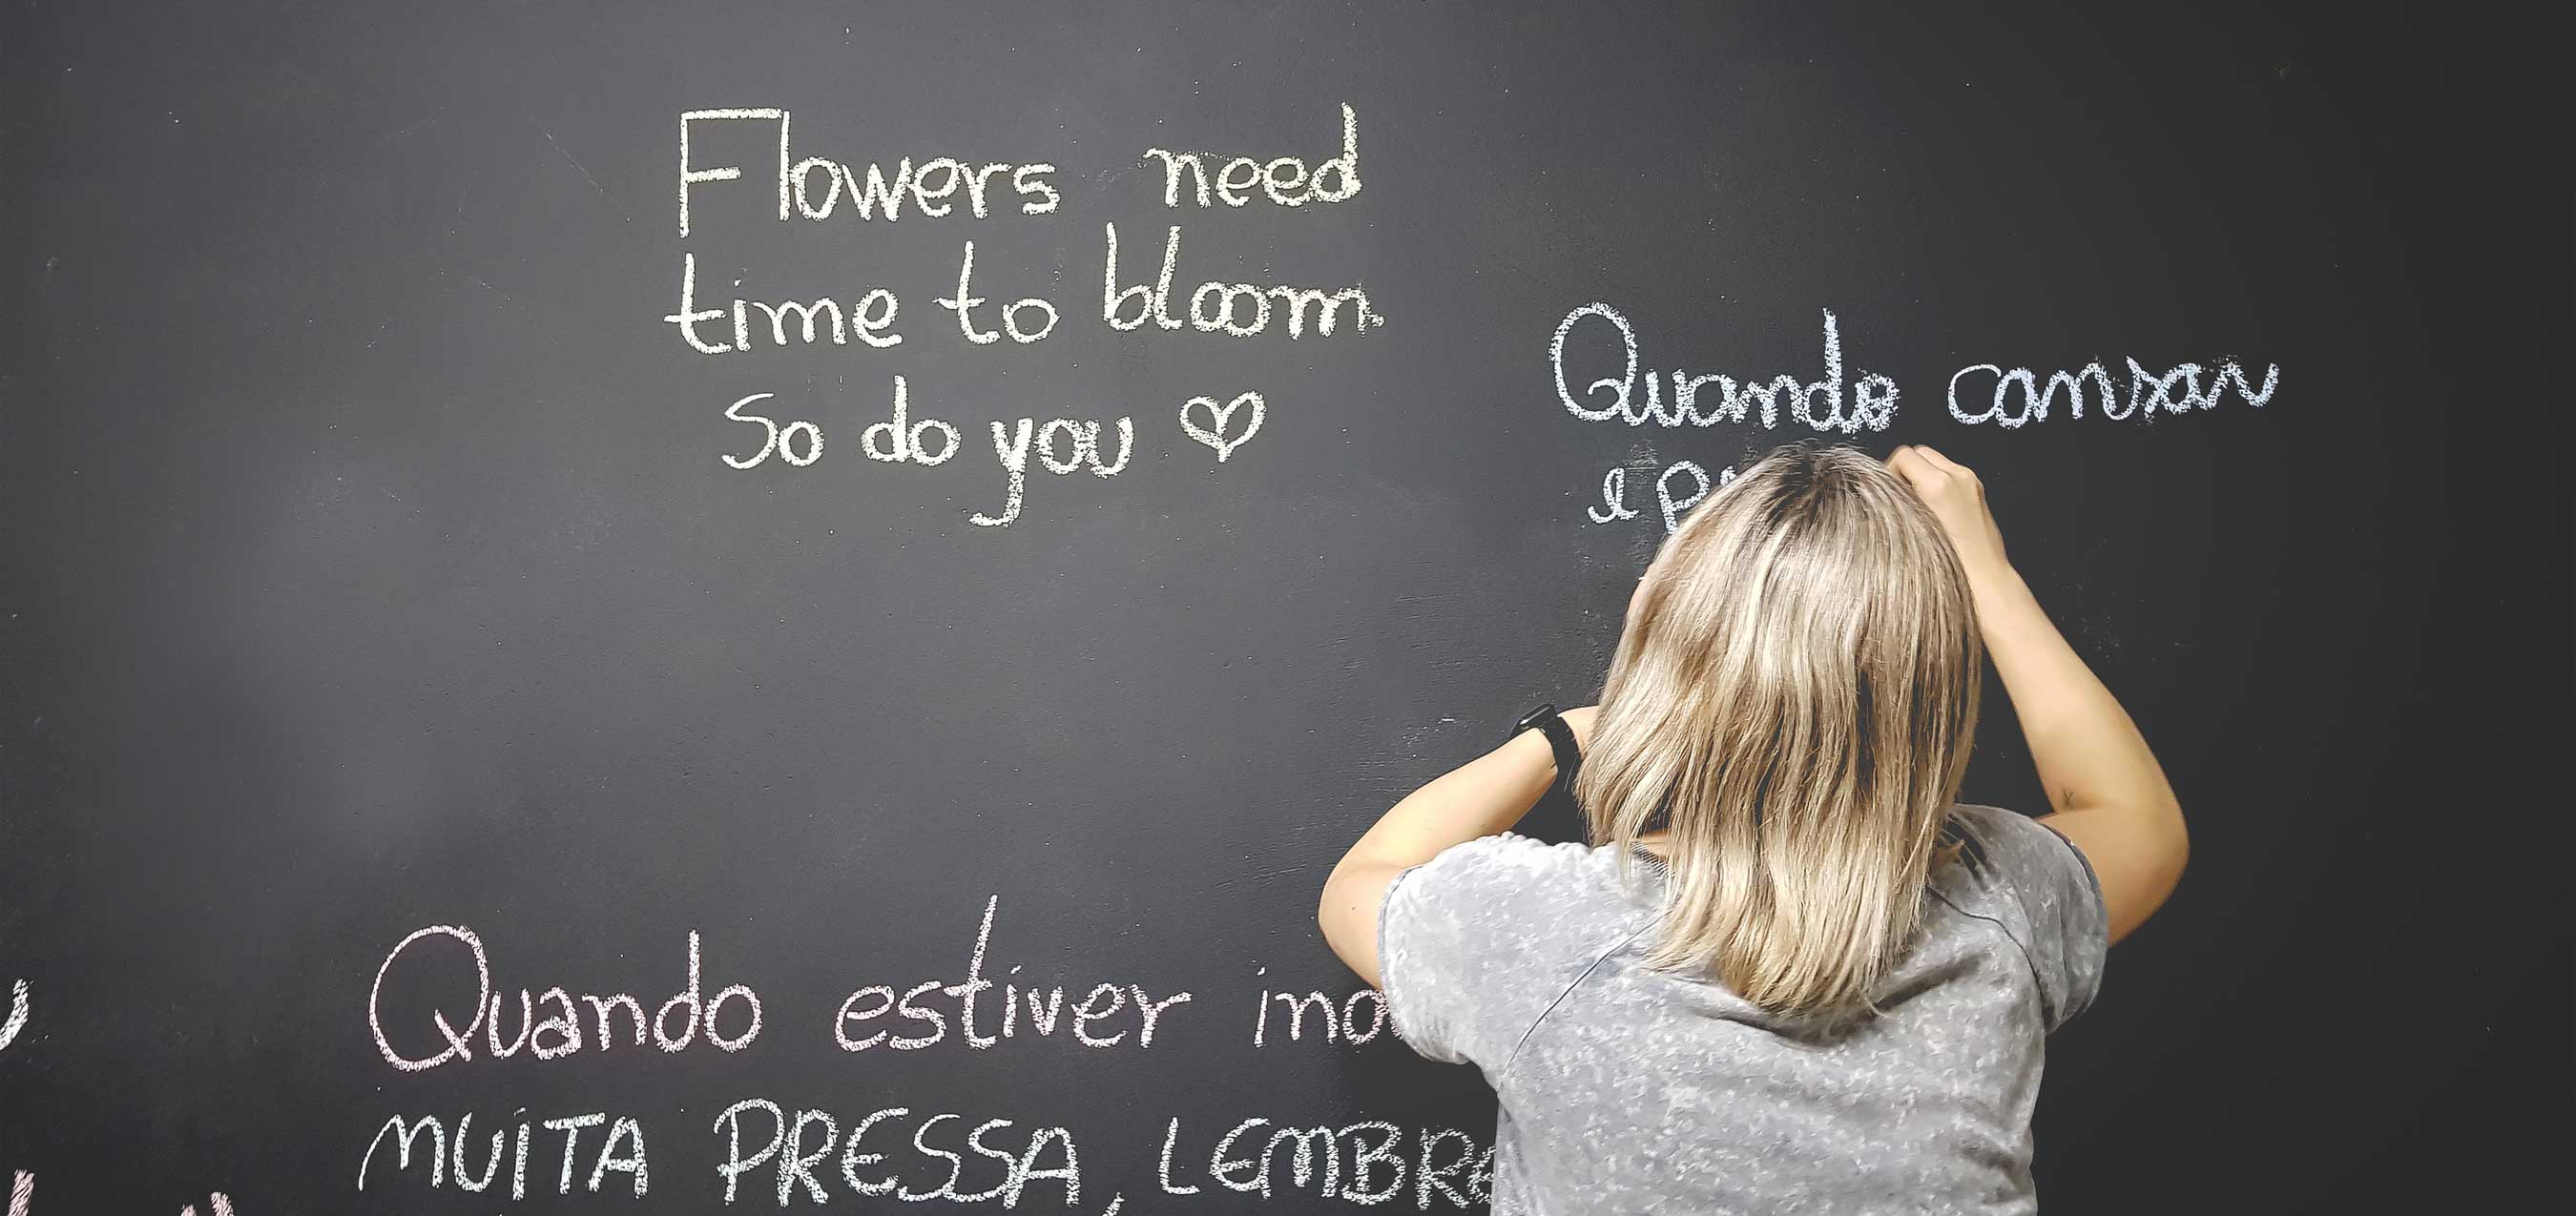 Flowers need
time to bloom.
So do you ♡
Quando cansar
Quando estiver
MUITA PRESSA,